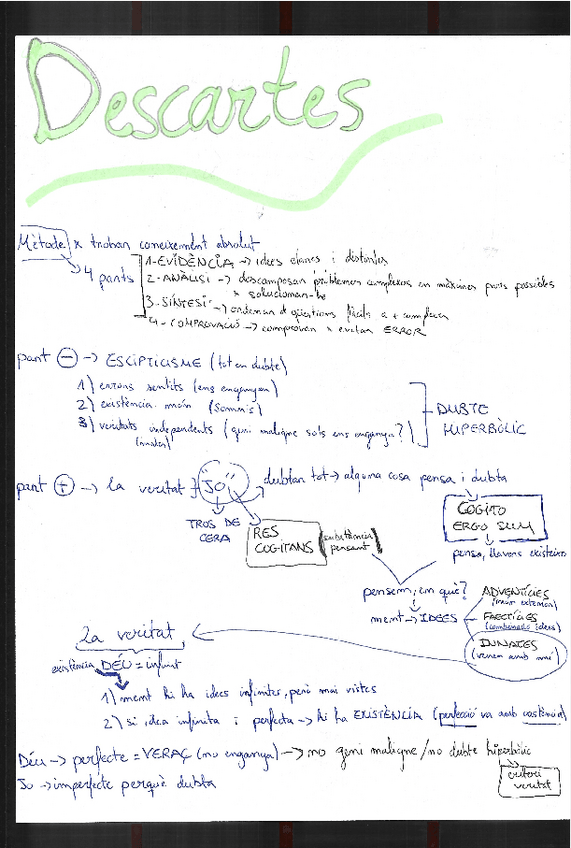 Descartes
Mètode x trobar coneixement absolut
4 parts
1-EVIDÈNCIA -> idees clares i distintes
2-ANÀLISI -> descomposar problemes complexos en màxims parts possibles
x solucionar-ho
3-SÍNTESI -> ordenar qüestions fàcils a + complexes
4-COMPROVACIÓ -> comprovar x evitar ERROR
part - -> ESCEPTICISME (tot en dubte)
1) errors sentits (ens enganyen)
2) existència món (somnis)
3) veritats independents (geni maligne sols ens enganya?)
(innates)
DUBTE
HIPERBÒLIC
part + -> 1a veritat "JO"
dubtar tot -> alguna cosa pensa i dubta
TROS DE
CERA
RES
COGITANS
(substància
pensant)
COGITO
ERGO SUM
penso, llavors existeixo
pensem, en què?
ment -> IDEES
ADVENTÍCIES
(món exterior)
FACTÍCIES
(combinació idees)
INNATES
(venen amb mi)
2a veritat
existència DÉU = infinit
1) ment hi ha idees infinites, però mai vistes
2) si idea infinita i perfecta -> hi ha EXISTÈNCIA (perfecció va amb existència)
Déu -> perfecte = VERAÇ (no enganya) -> no geni maligne / no dubte hiperbòlic
Jo -> imperfecte perquè dubta
criteri
veritat